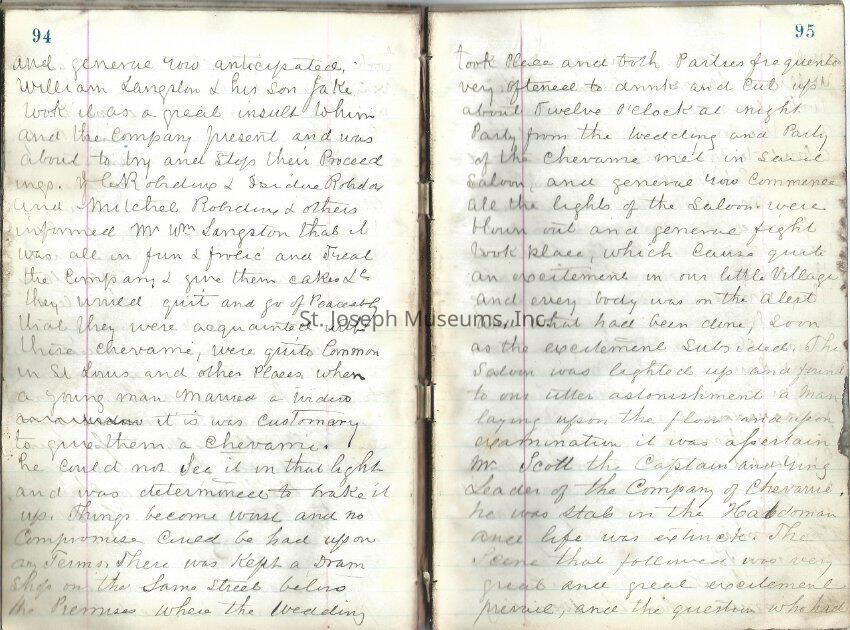 94
and general row anticipated,
William Langston & his son Jake
took it as a great insult whim
and the Company present and was
about to try and stop their Proceed
ings. Robidoux & Isidore Robidou
and Mitchel Robidoux & others
informed Mr Wm Langston that it
was all in fun & frolic and Treat
the Company & give them cakes &c
they would quit and go of Peaceably
that they were acquainted with
these chevarrie, were quite Common
in St Louis and other Places when
a young man Married a widow
it is was customary
to give them a Chevarrie.
he could not See it in that light
and was determined to brake it
up. Things become worst and no
Compromise Could be had upon
any Terms. There was Kept a Dram
shop on the Same Street below
the Premises where the Wedding
95
took Place and both Parties frequente
very oftened to drink and Cut up
about Twelve O'Clock at night
Party from the Wedding and Party
of the Chevarrie met in Said
Saloon, and general row Commence
all the lights of the Saloon were
blown out and general fight
took place, which Cause quite
an excitement in our little Village
and every body was on the alert
what had been done, Soon
as the excitement Subsided. The
Saloon was lighted up and found
to our utter astonishment a Man
laying upon the floor and upon
examination it was assertain
Mr Scott the Captain and Ring
Leader of the Company of Chevarrie.
he was Stab in the Habdoman
and life was extinct. The
Scene that followed was very
great and great excitement
prevail, and the question who had
St. Joseph Museums, Inc.